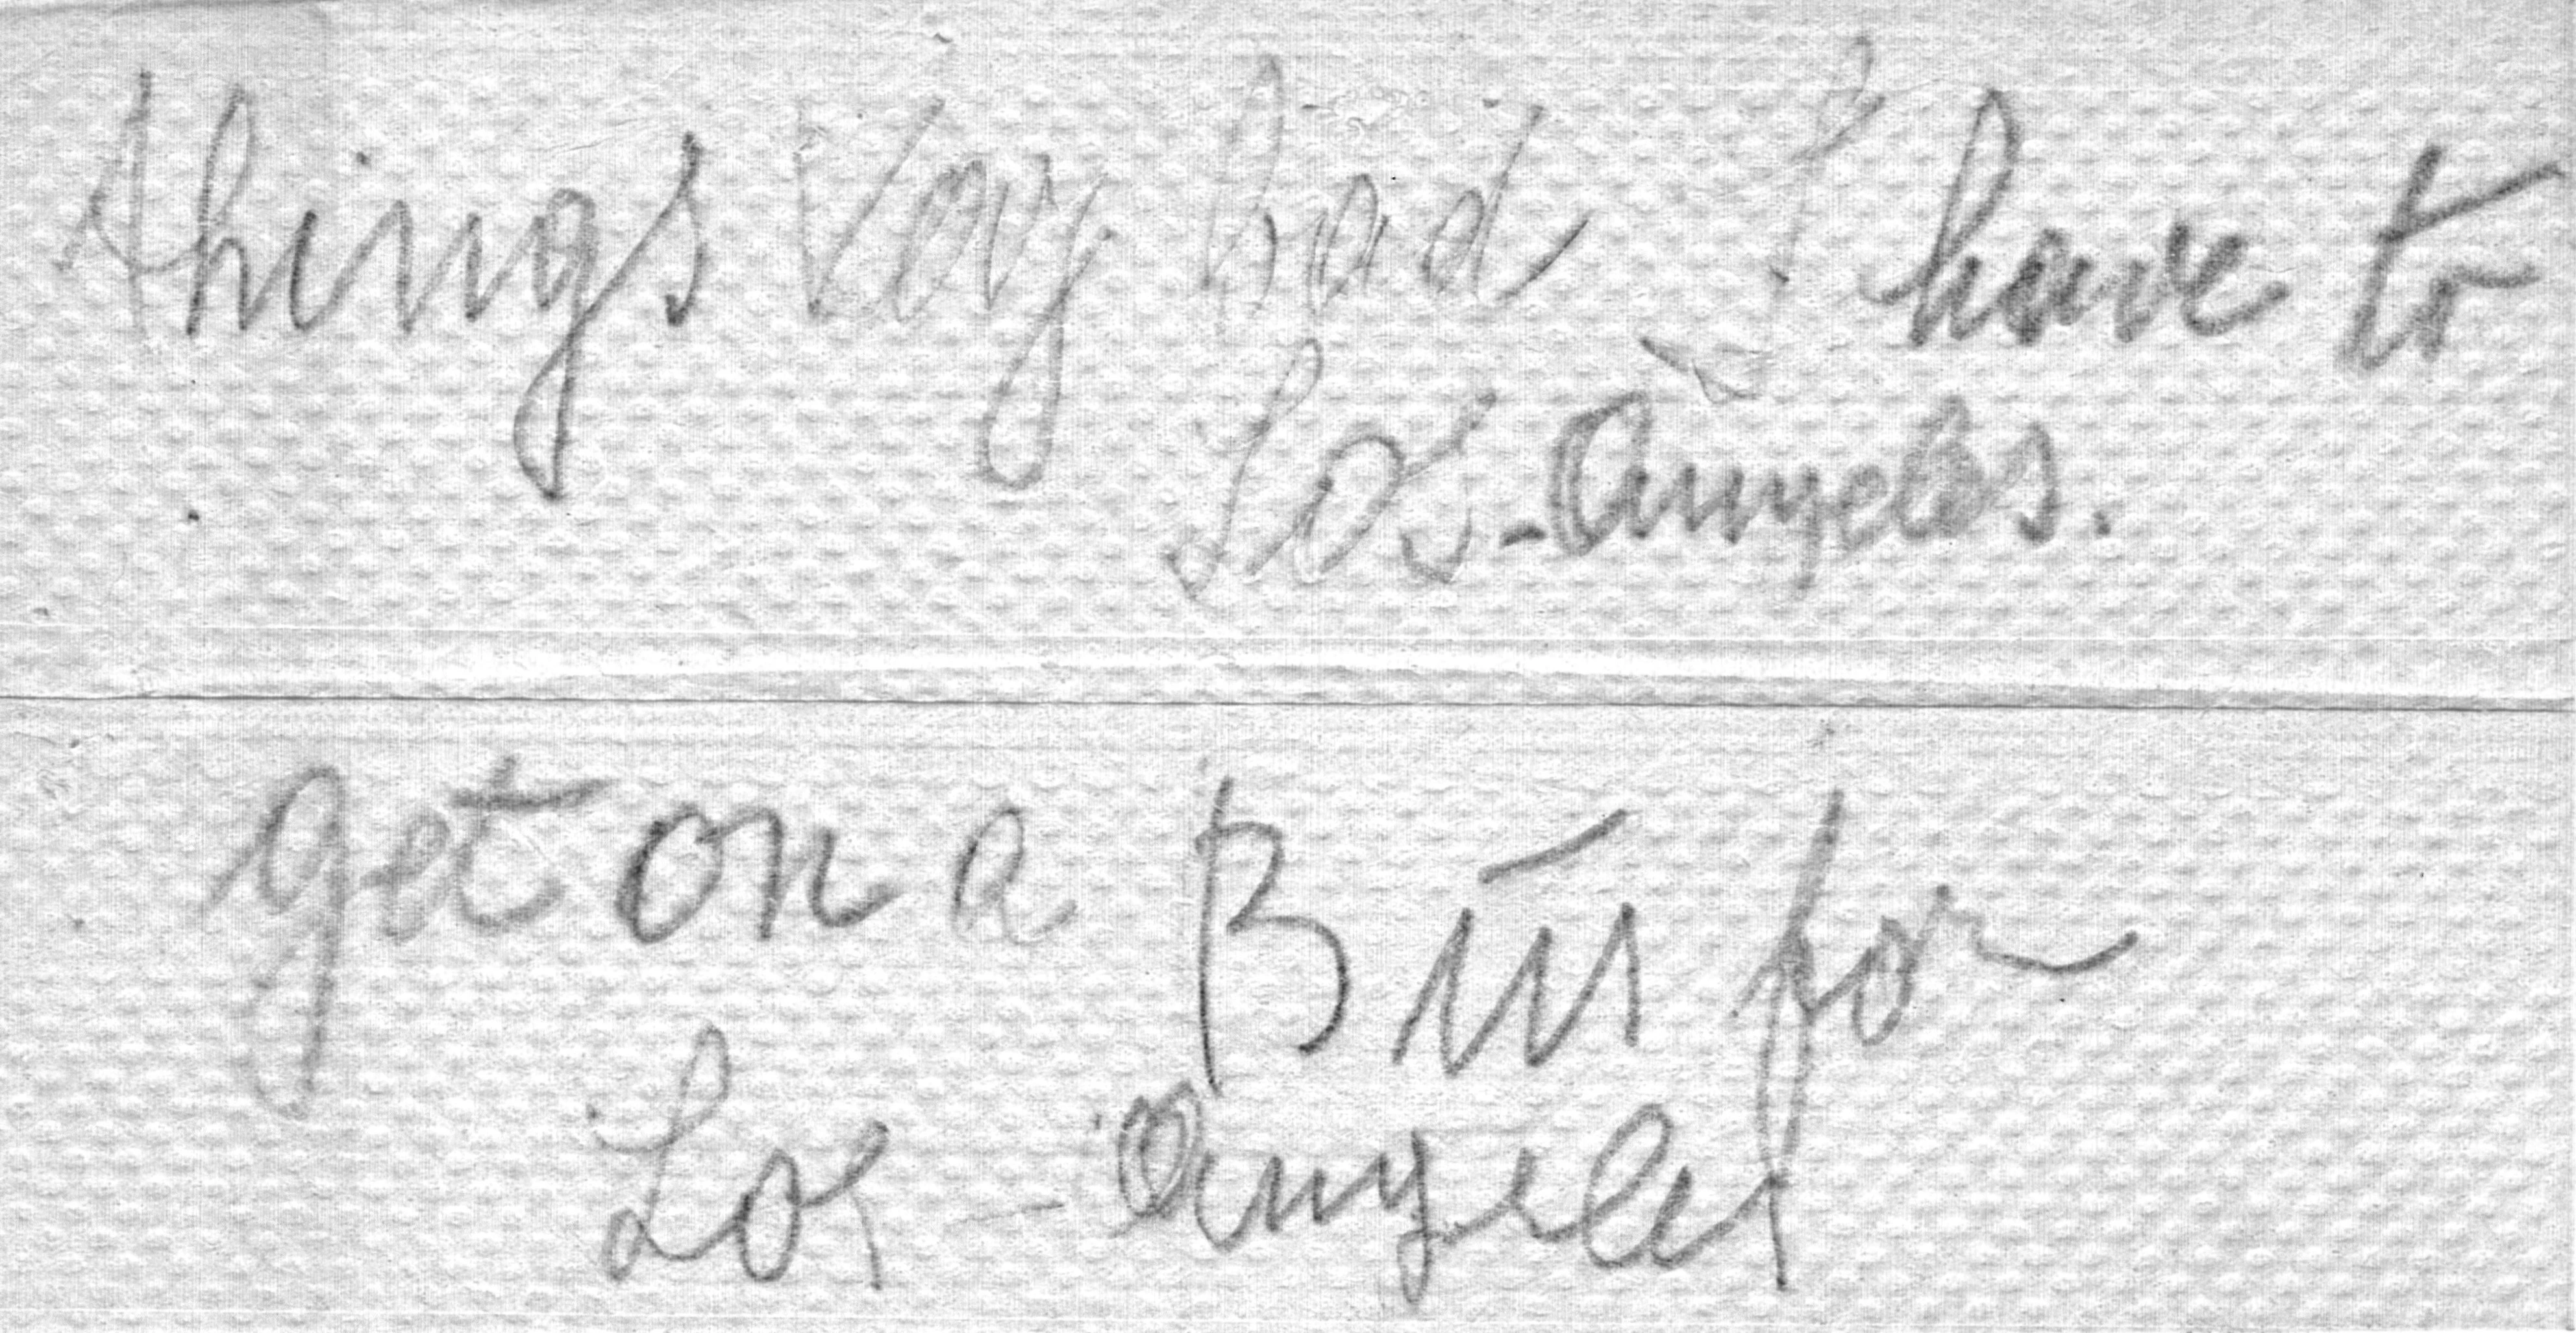 things very bad I have to
Los-Angeles.
get on a Bus for
Los - Angeles